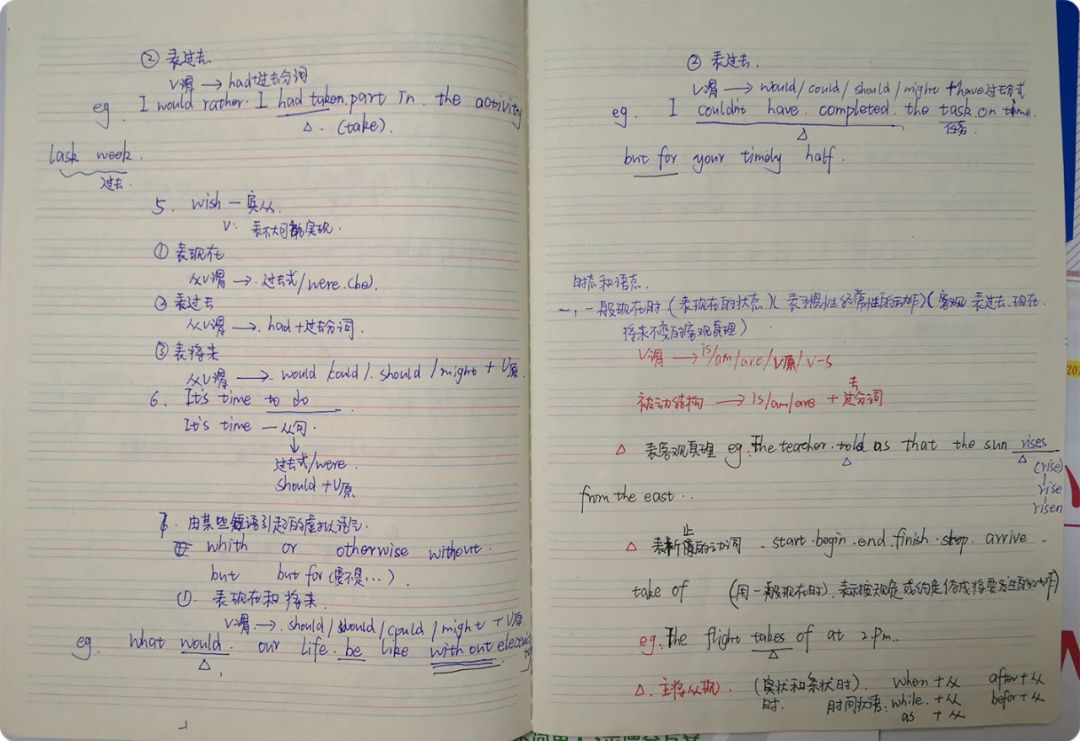 ② 表过去
V谓 → had+过去分词
eg. I would rather I had taken part in the activity
△ (take).
lask week.
过去.
5. wish 一 宾从.
V: 表不大可能实现.
① 表现在
从V谓 → 过去式/were (be).
② 表过去
从V谓 → had + 过去分词.
③ 表将来
从V谓 → would /could / should / might + V原.
6. It's time to do
It's time 一 从句.
↓
过去式/were
should + V原
7. 由某些短语引起的虚拟语气.
whith or otherwise without.
but but for (要不是...).
①. 表现在和将来
V谓 → should / would / could / might + V原.
eg. what would our life be like without
△
② 表过去.
V谓 → would / could / should / might + have过去分式
eg. I couldn't have completed the task on time.
△ 任务
but for your timely half.
时态和语态.
一, 一般现在时 (表现在的状态)( 表习惯性经常性的动作)(客观 表过去.现在.
将来不变的客观真理)
V谓 → is/am/are/V原/V-s
去
被动结构 → is/am/are + 过分词
△ 表客观真理 eg. The teacher told as that the sun rises
△ △ (rise)
rise
from the east.. risen
止
△ start.begin.end.finish.stop. arrive.
take of (用一般现在时). 表示按规定或约定俗成将要发生的动作)
eg. The flight takes of at 2.pm..
△
△. 主将从现. (实状和条状时). when +从 after+从
时. 时间状语: while. +从 befor+从
as +从